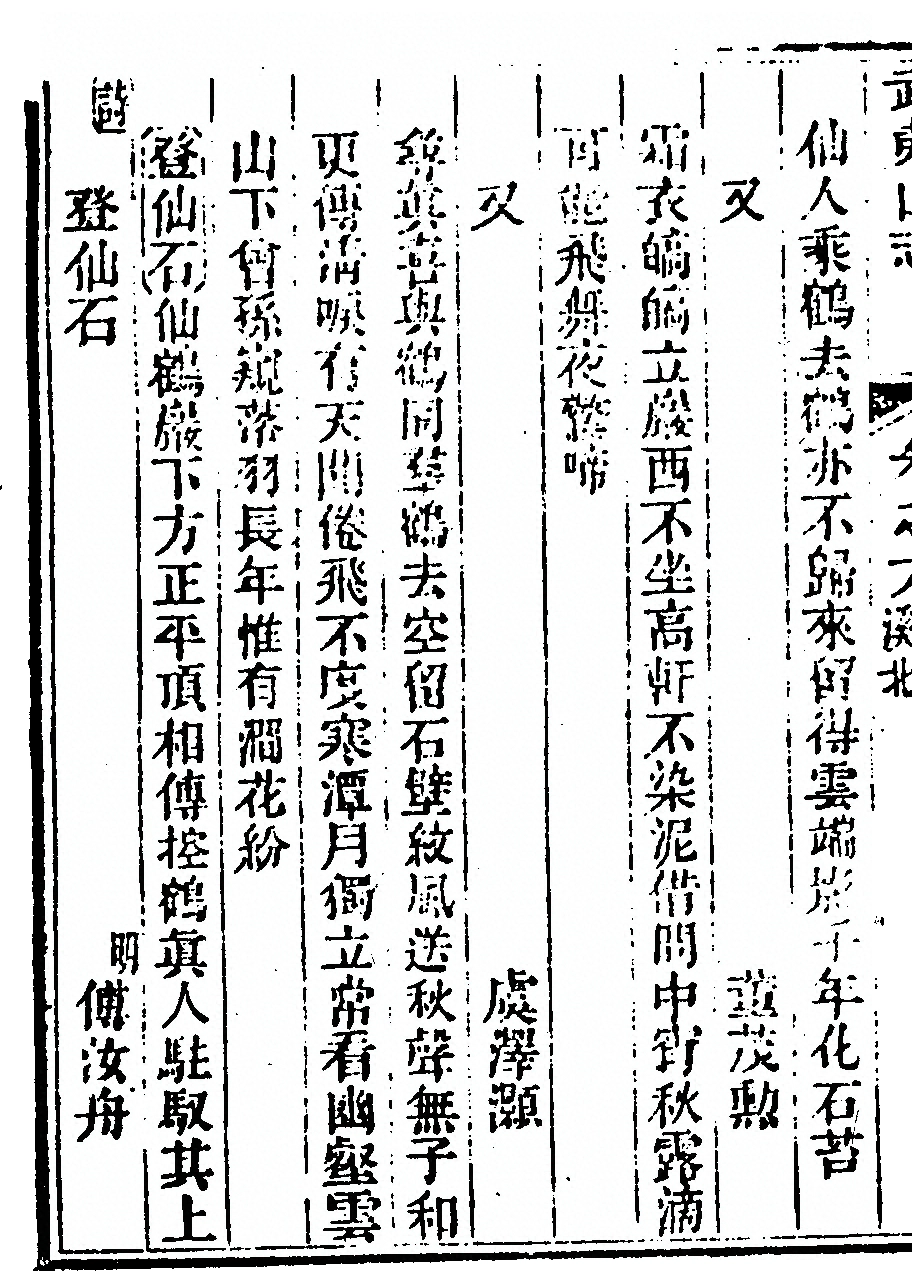 武夷山志
溪北
仙人乘鶴去鶴亦不歸來留得雲端影千年化石苔
又 董茂勲
霜衣皜皜立巖西不坐高軒不染泥借問中宵秋露滴
可能飛舞夜警啼
又 虞澤灝
眞喜與鶴同羣鶴去空留石壁紋風送秋聲無子和
更傳清唳有天聞倦飛不度寒潭月獨立常看幽壑雲
山下曾孫窺落羽長年惟有澗花紛
登仙石仙鶴巖下方正平頂相傳控鶴眞人駐馭其上
詩
登仙石 明 傅汝舟